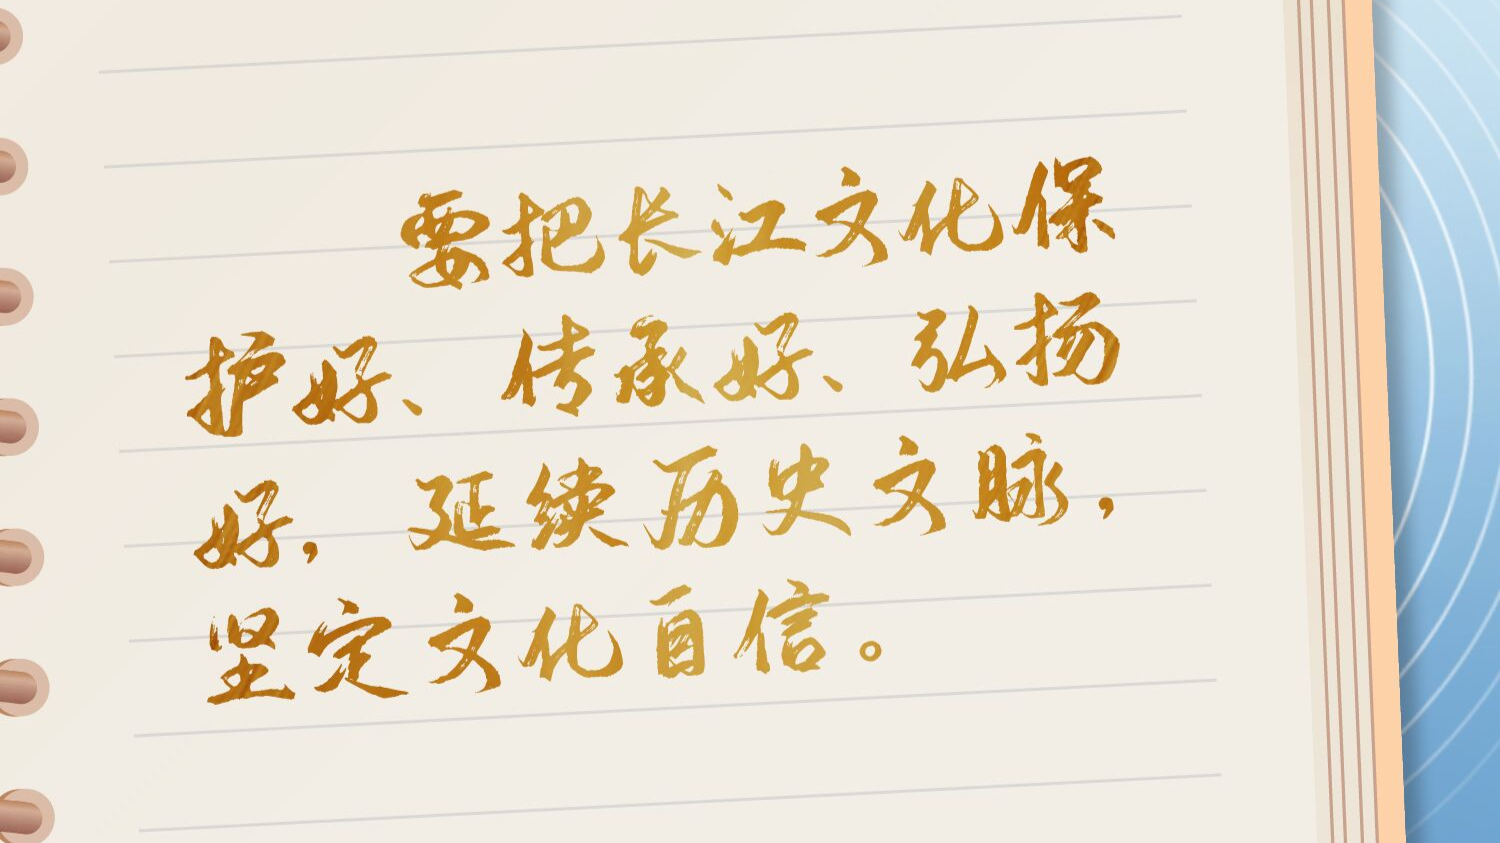 要把长江文化保
护好、传承好、弘扬
好，延续历史文脉，
坚定文化自信。